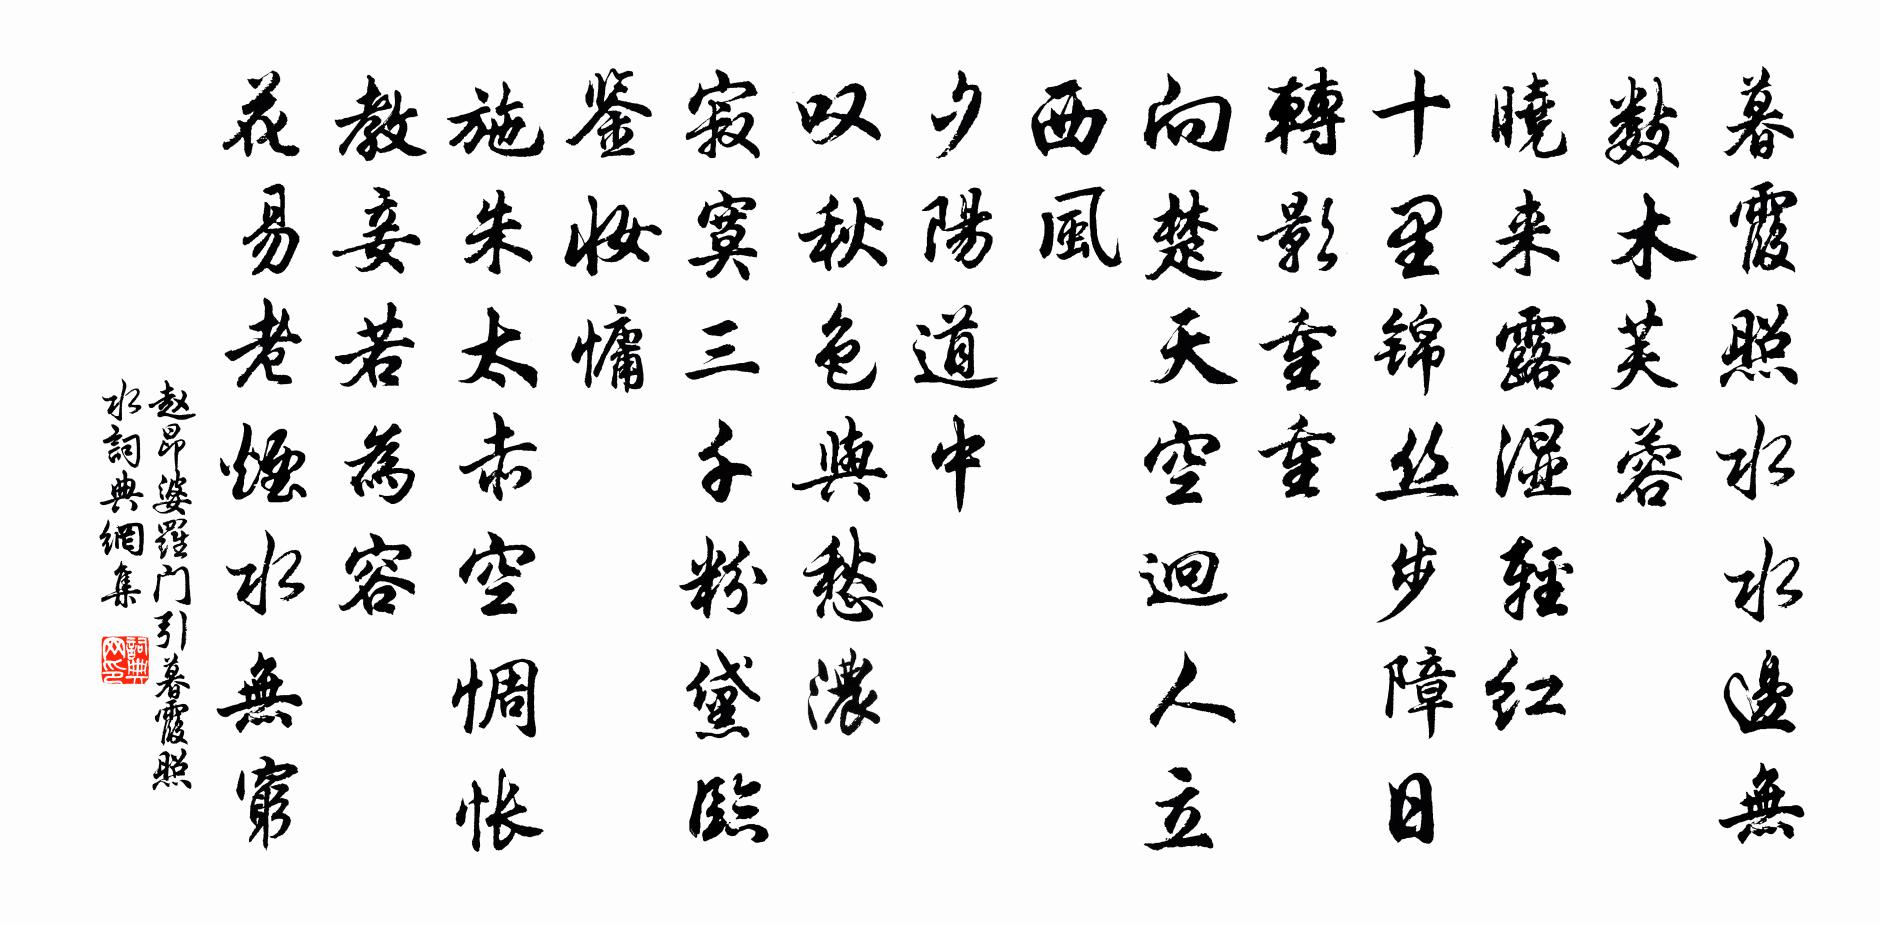 暮霞照水水邊無
數木芙蓉
曉来露濕輕红
十里锦丝步障日
轉影重重
向楚天空迥人立
西風
夕陽道中
叹秋色與愁濃
寂寞三千粉黛臨
鉴妝慵
施朱太赤空惆怅
教妾若為容
花易老煙水無窮
赵昂婆羅门引暮霞照
水詞典網集
詞典网印